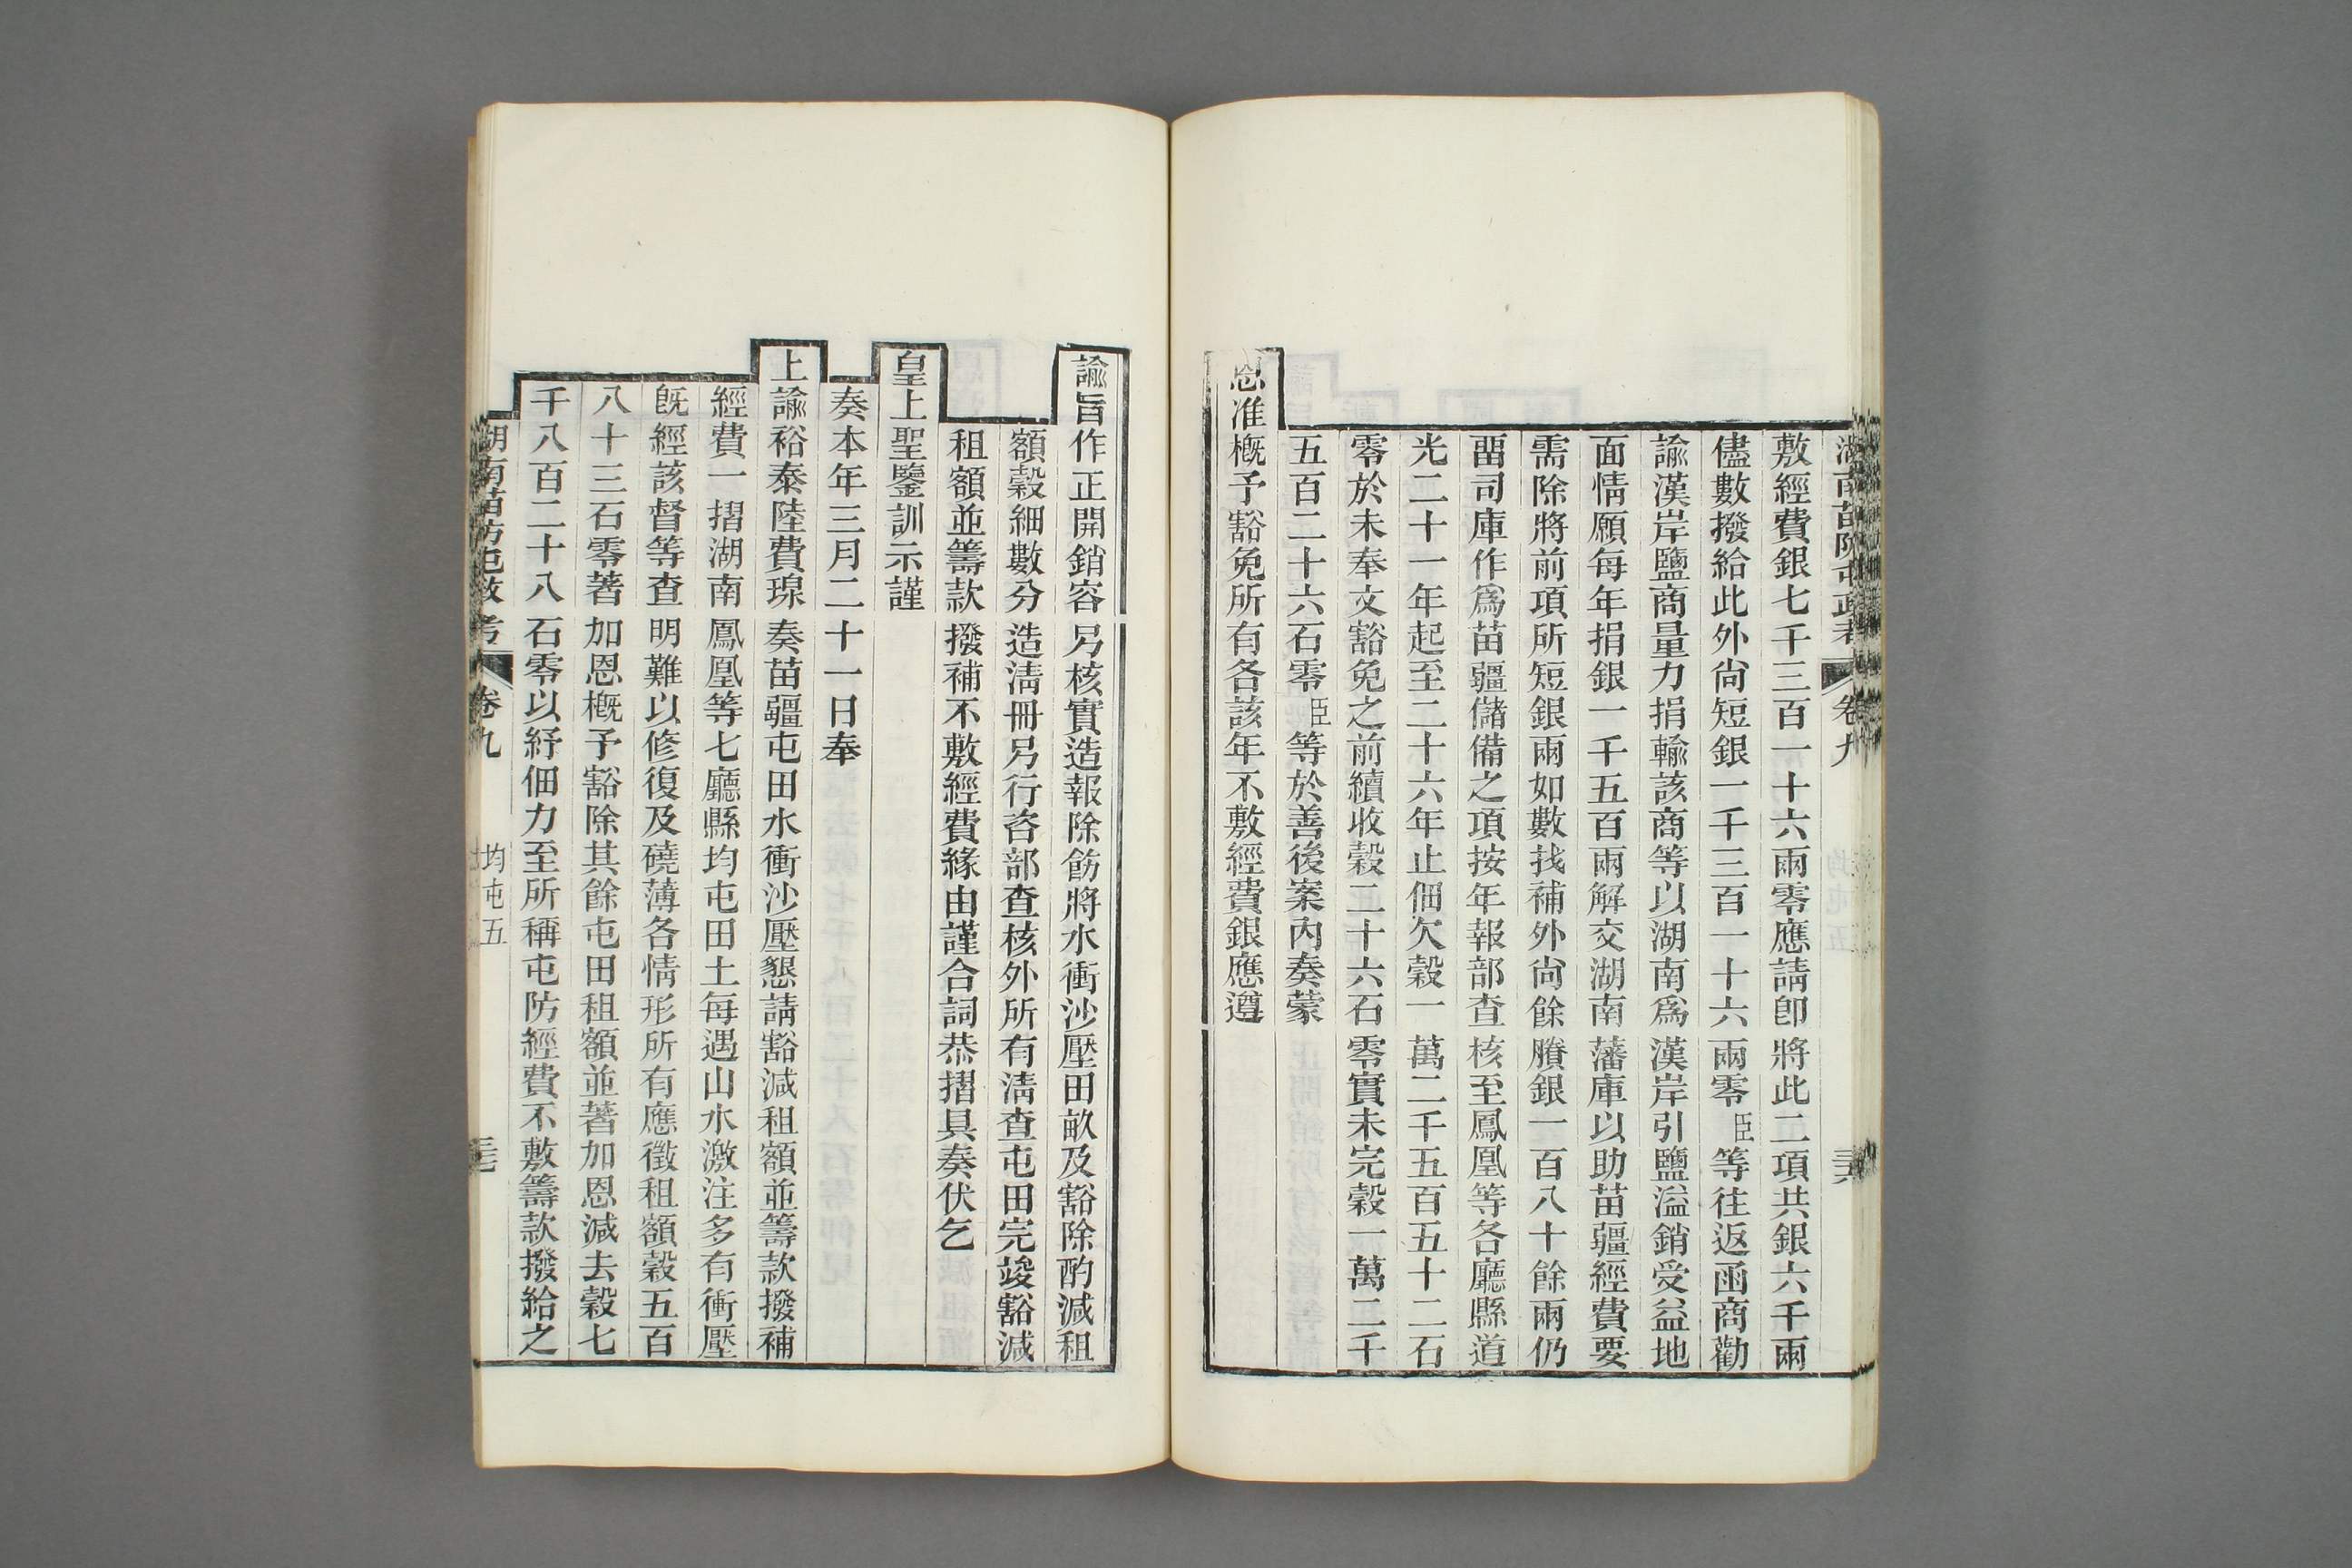 湖南苗防屯政考 卷九 三六
敷經費銀七千三百一十六兩零應請卽將此二項共銀六千兩
儘數撥給此外尙短銀一千三百一十六兩零臣等往返函商勸
諭漢岸鹽商量力捐輸該商等以湖南爲漢岸引鹽溢銷受益地
面情願每年捐銀一千五百兩解交湖南藩庫以助苗疆經費要
需除將前項所短銀兩如數找補外尙餘賸銀一百八十餘兩仍
畱司庫作爲苗疆儲備之項按年報部查核至鳳凰等各廳縣道
光二十一年起至二十六年止佃欠穀一萬二千五百五十二石
零於未奉文豁免之前續收穀二十六石零實未完穀一萬二千
五百二十六石零臣等於善後案內奏蒙
恩准槪予豁免所有各該年不敷經費銀應遵
諭旨作正開銷容另核實造報除飭將水衝沙壓田畝及豁除酌減租
額穀細數分造淸冊另行咨部查核外所有淸查屯田完竣豁減
租額並籌款撥補不敷經費緣由謹合詞恭摺具奏伏乞
皇上聖鑒訓示謹
奏本年三月二十一日奉
上諭裕泰陸費瑔奏苗疆屯田水衝沙壓懇請豁減租額並籌款撥補
經費一摺湖南鳳凰等七廳縣均屯田土每遇山水激注多有衝壓
旣經該督等查明難以修復及磽薄各情形所有應徵租額穀五百
八十三石零著加恩槪予豁除其餘屯田租額並著加恩減去穀七
千八百二十八石零以紓佃力至所稱屯防經費不敷籌款撥給之
湖南苗防屯政考 卷九 均屯五 三七